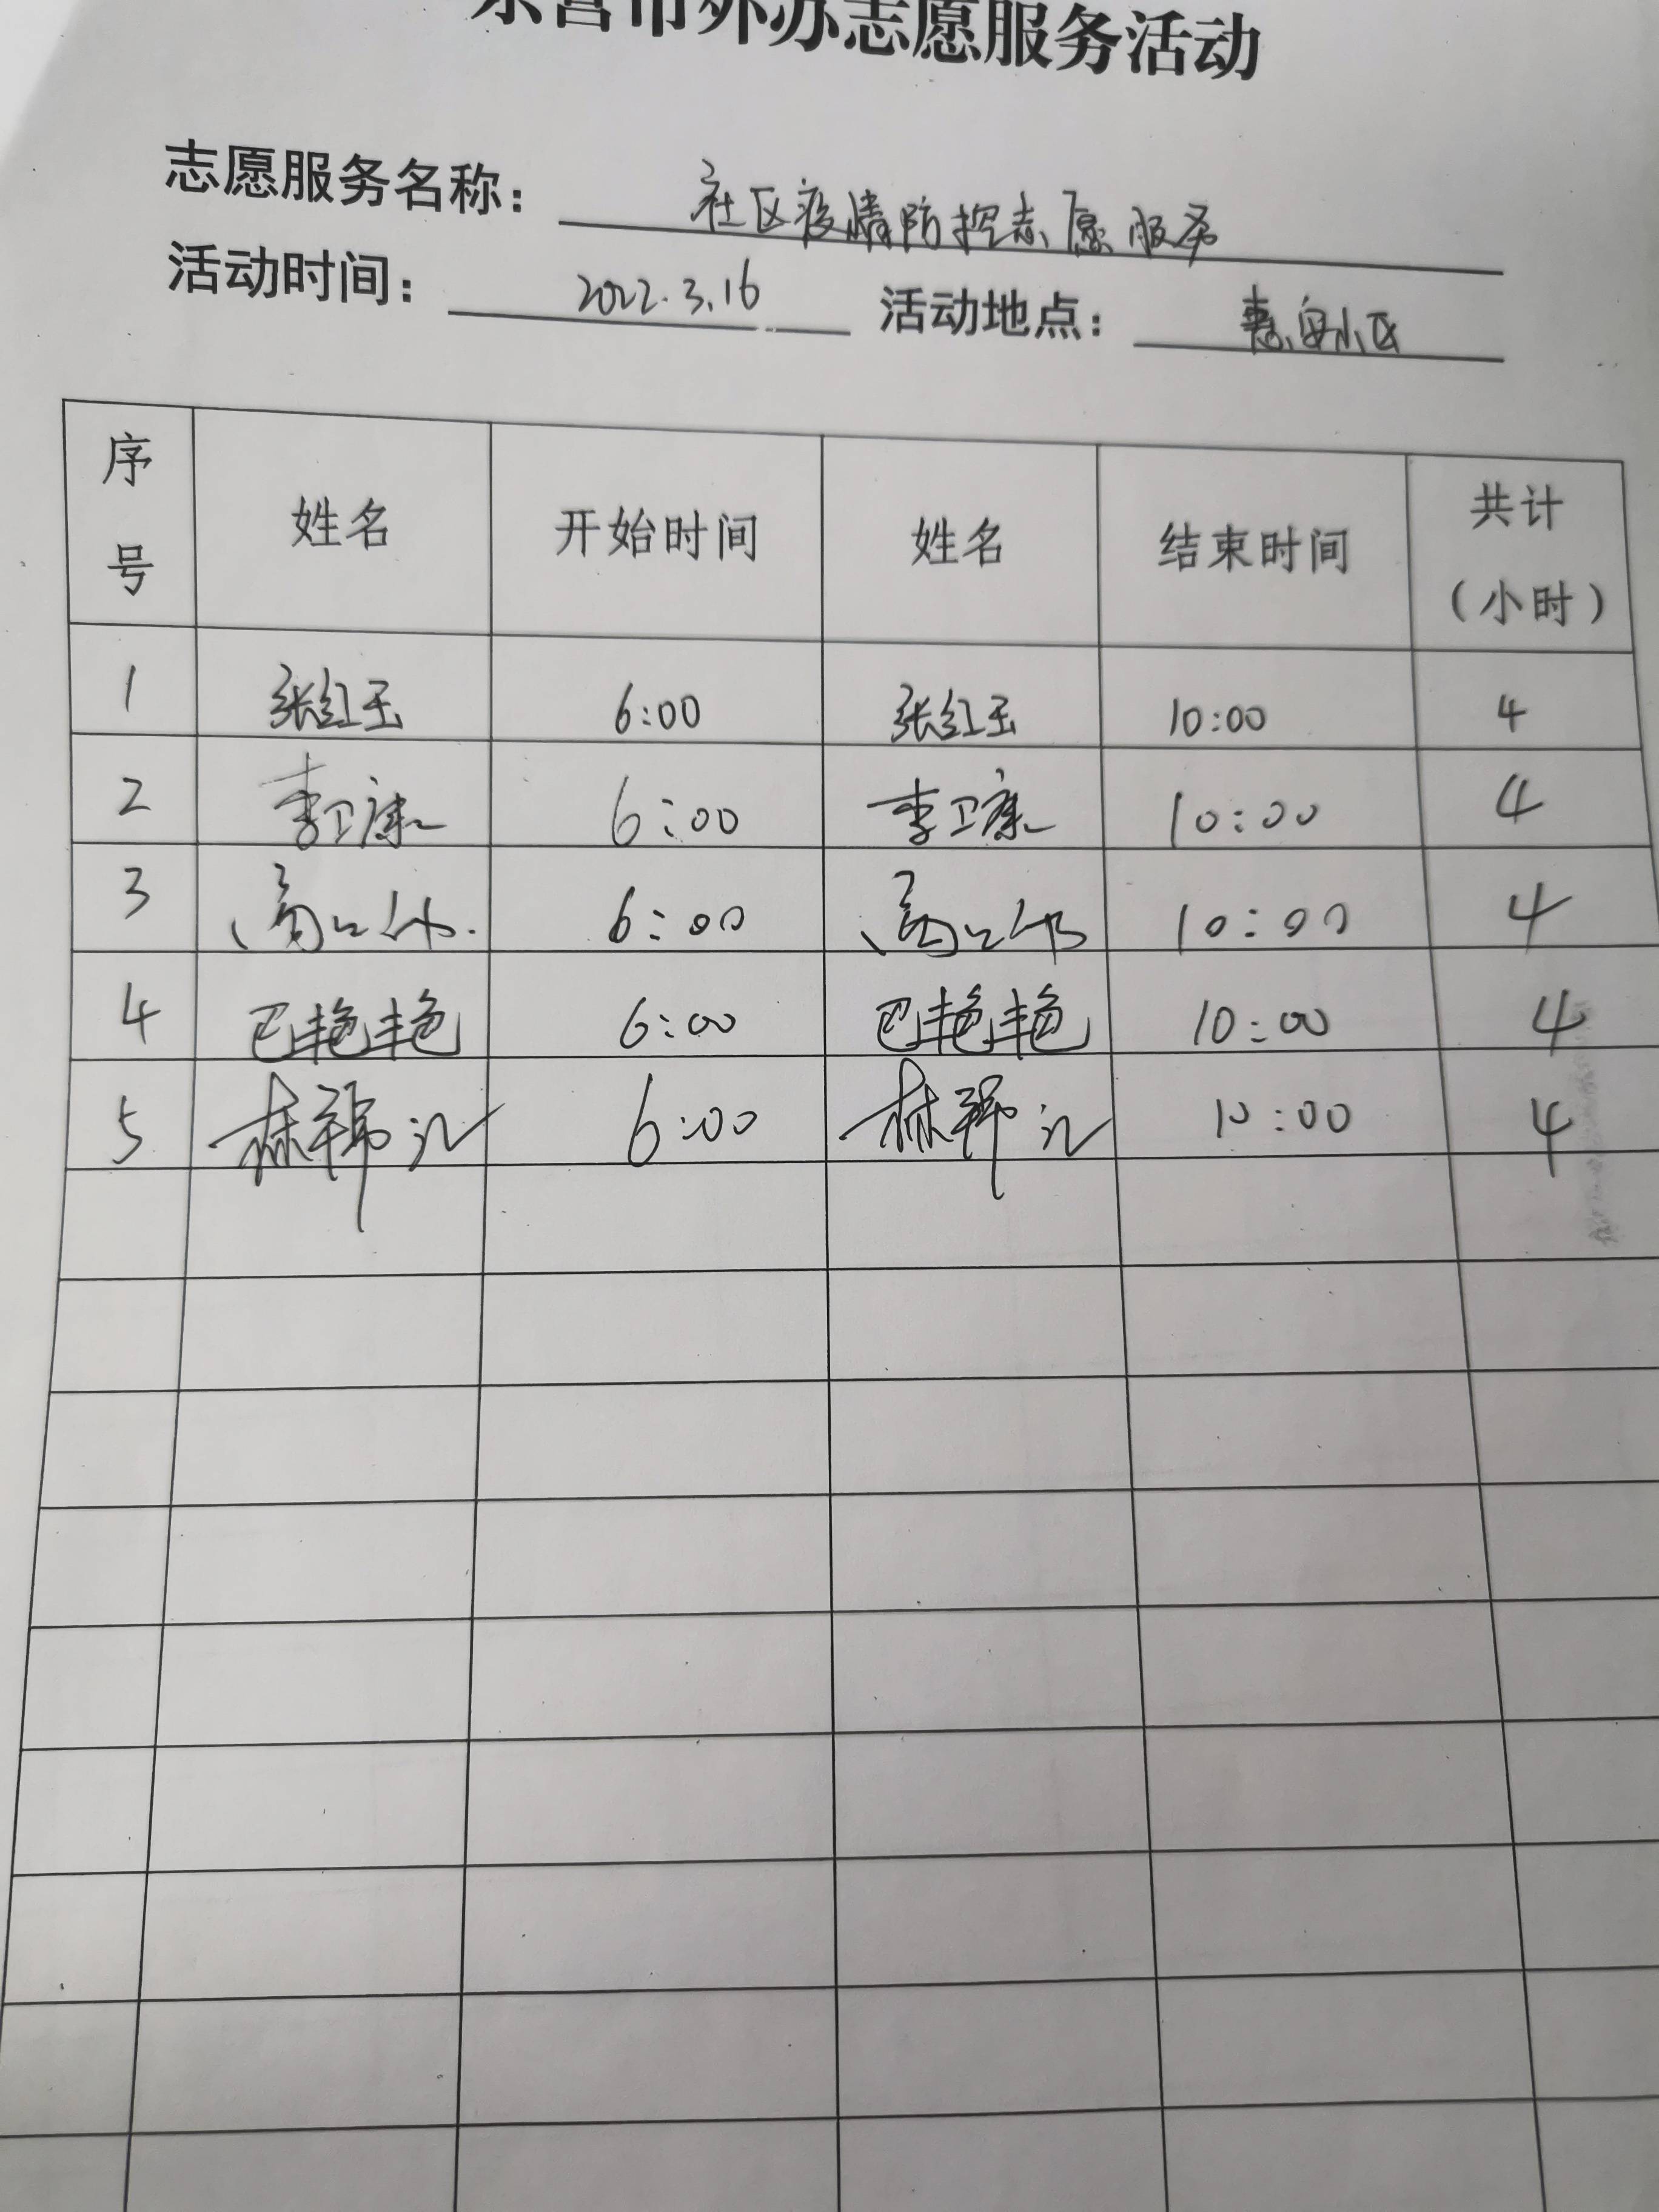 东营市外办志愿服务活动
志愿服务名称： 社区疫情防控志愿服务
活动时间： 2022.3.16 活动地点： 惠安小区
序号 姓名 开始时间 姓名 结束时间 共计（小时）
1 张红玉 6:00 张红玉 10:00 4
2 李卫康 6:00 李卫康 10:00 4
3 6:00 10:00 4
4 巴艳艳 6:00 巴艳艳 10:00 4
5 6:00 10:00 4